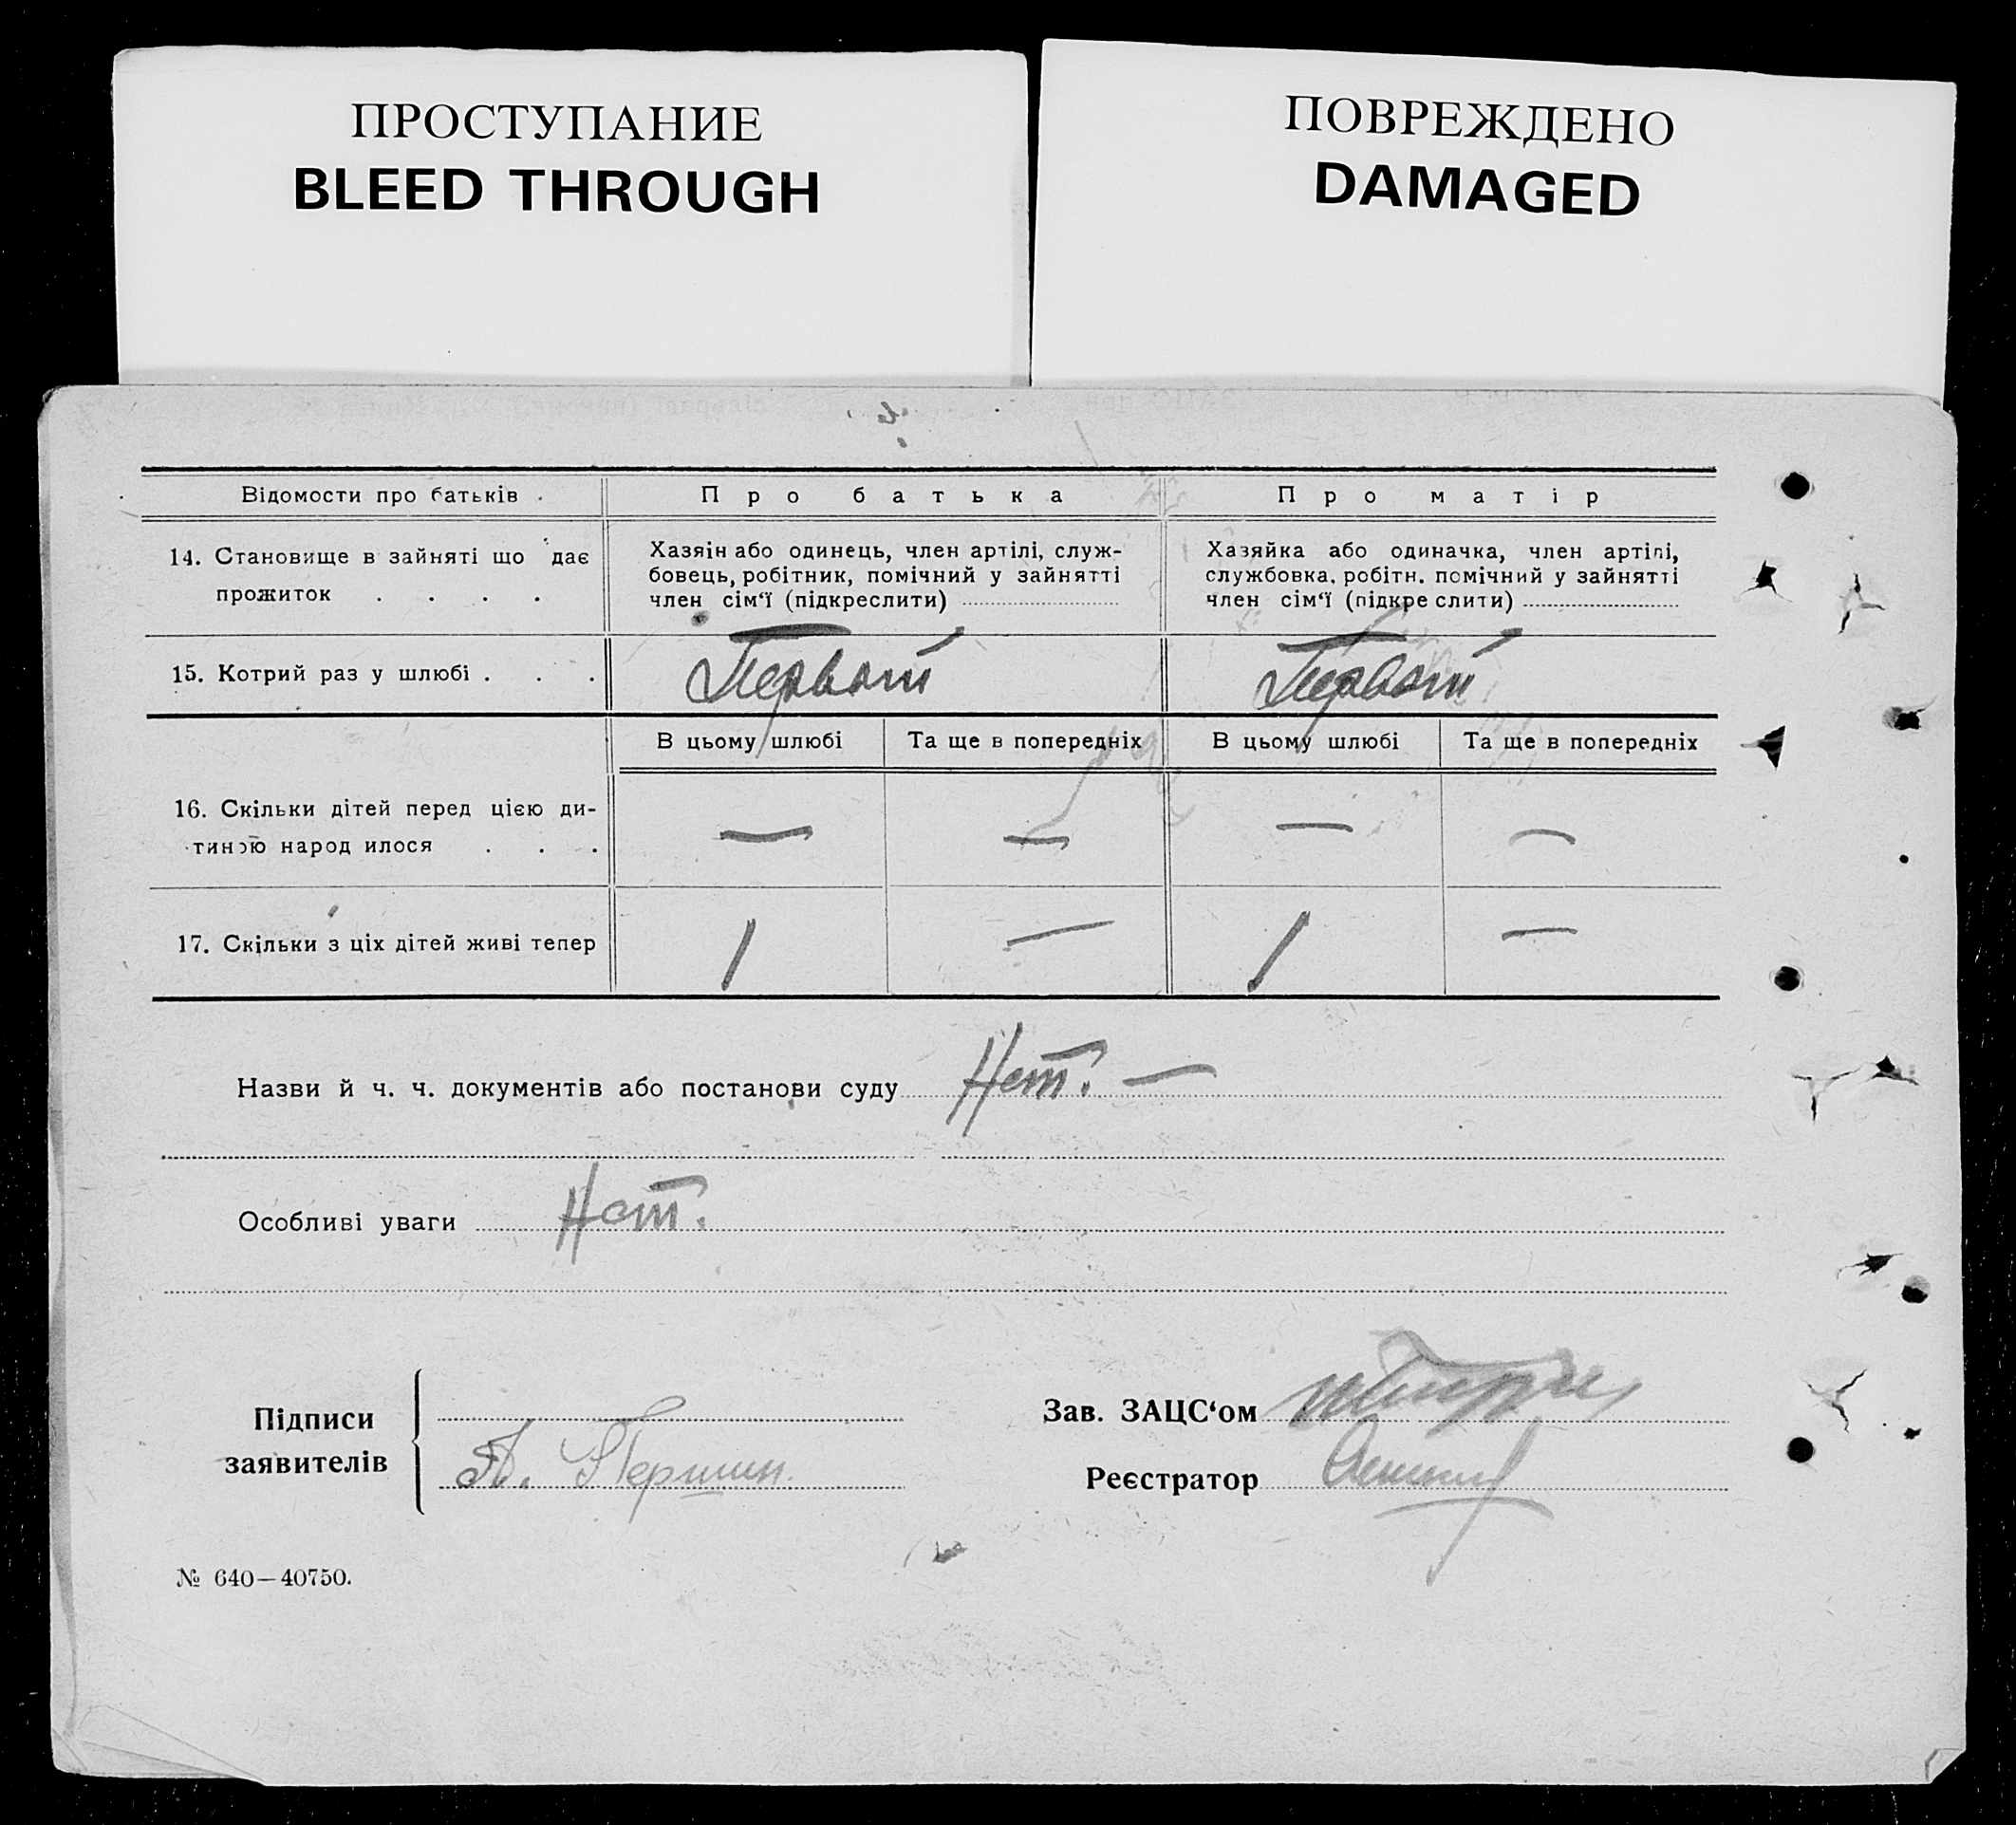 ПРОСТУПАНИЕ
BLEED THROUGH
ПОВРЕЖДЕНО
DAMAGED
Відомости про батьків
Про батька
Про матір
14. Становище в зайняті що дає
прожиток . . . .
Хазяін або одинець, член артілі, служ-
бовець, робітник, помічний у зайнятті
член сім‘ї (підкреслити)
Хазяйка або одиначка, член артілі,
службовка, робітн. помічний у зайнятті
член сім‘ї (підкреслити)
15. Котрий раз у шлюбі . . .
Первый
Первый
В цьому шлюбі
Та ще в попередніх
В цьому шлюбі
Та ще в попередніх
16. Скільки дітей перед цією ди-
тиною народилося . . .
— — — —
17. Скільки з ціх дітей живі тепер
1 — 1 —
Назви й ч. ч. документів або постанови суду Нет. —
Особливі уваги Нет.
Підписи
заявителів
А. Першин.
Зав. ЗАЦС‘ом
Реєстратор
№ 640—40750.